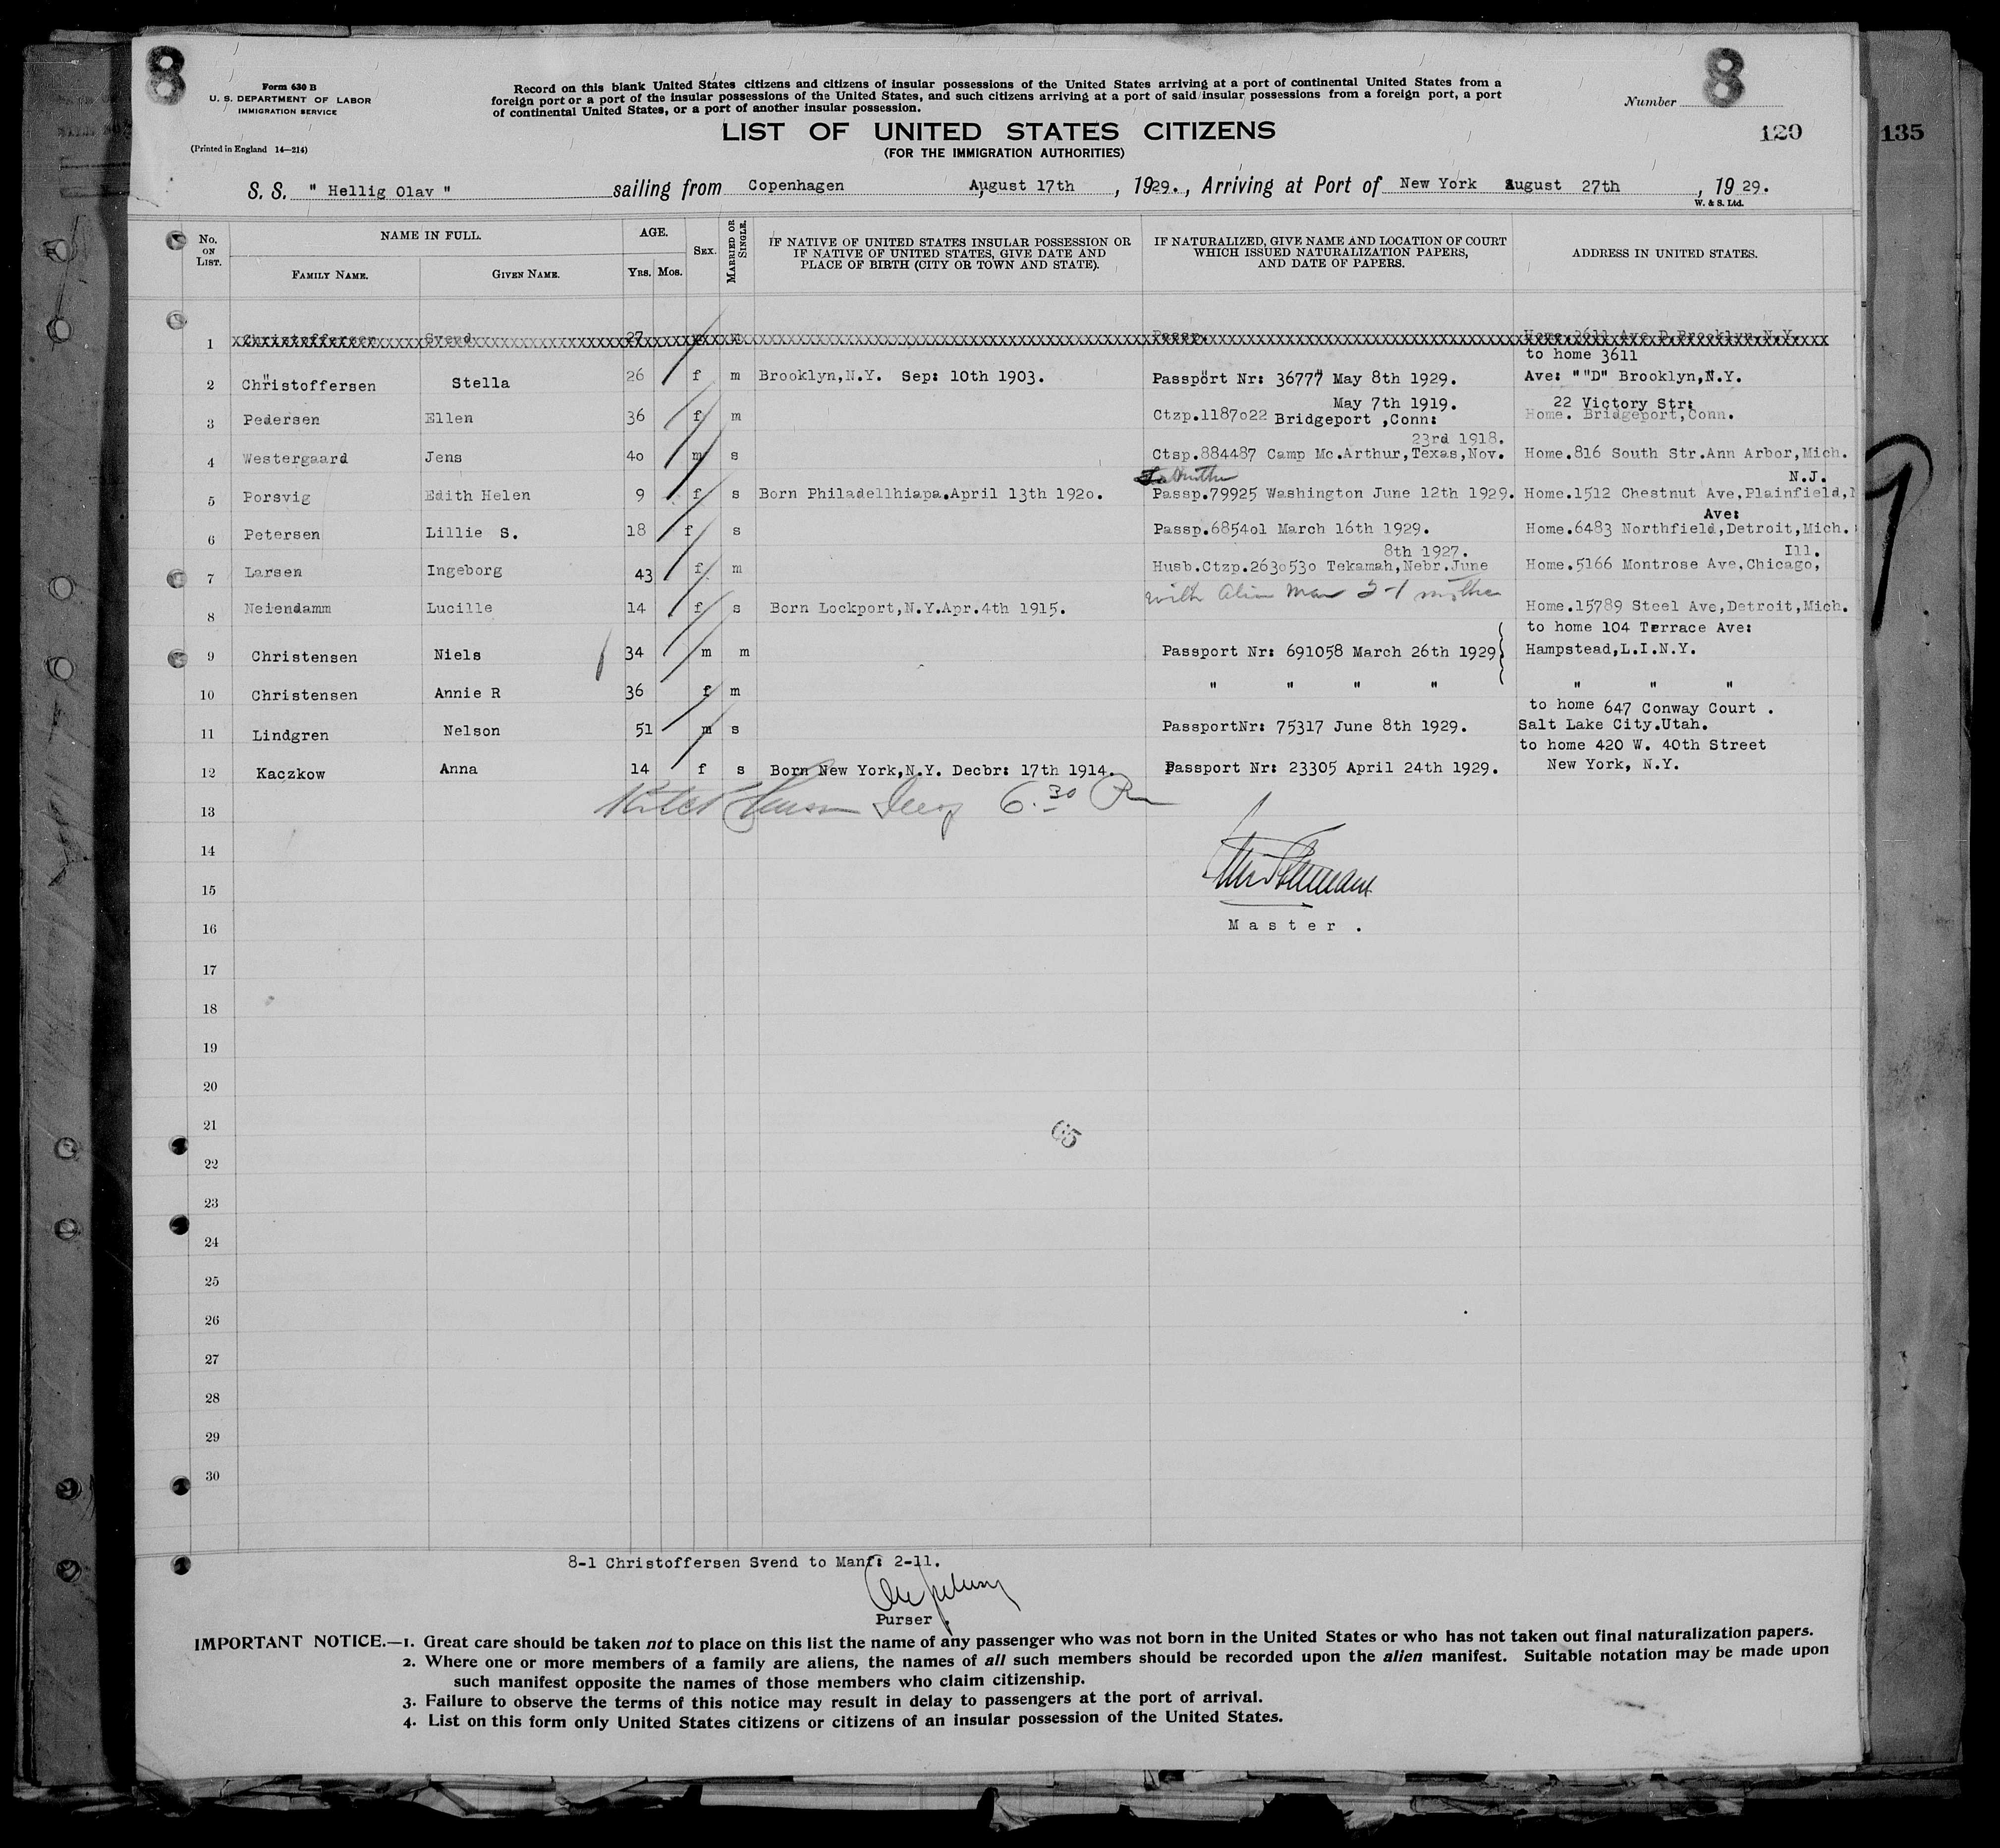 8
8
Form 630 B
U. S. DEPARTMENT OF LABOR
IMMIGRATION SERVICE
(Printed in England 14—214)
Record on this blank United States citizens and citizens of insular possessions of the United States arriving at a port of continental United States from a
foreign port or a port of the insular possessions of the United States, and such citizens arriving at a port of said insular possessions from a foreign port, a port
of continental United States, or a port of another insular possession.
Number
LIST OF UNITED STATES CITIZENS
(FOR THE IMMIGRATION AUTHORITIES)
120
135
S. S. " Hellig Olav " sailing from Copenhagen August 17th , 1929. , Arriving at Port of New York August 27th , 19 29.
W. & S. Ltd.
No. ON LIST.
NAME IN FULL.
FAMILY NAME. GIVEN NAME.
AGE.
YRS. MOS.
SEX.
MARRIED OR SINGLE.
IF NATIVE OF UNITED STATES INSULAR POSSESSION OR
IF NATIVE OF UNITED STATES, GIVE DATE AND
PLACE OF BIRTH (CITY OR TOWN AND STATE).
IF NATURALIZED, GIVE NAME AND LOCATION OF COURT
WHICH ISSUED NATURALIZATION PAPERS,
AND DATE OF PAPERS.
ADDRESS IN UNITED STATES.
1 Christoffersen Svend 27 m m Passp. Home.3611 Ave D Brooklyn N.Y.
to home 3611
2 Christoffersen Stella 26 f m Brooklyn,N.Y. Sep: 10th 1903. Passport Nr: 36777 May 8th 1929. Ave: ""D" Brooklyn,N.Y.
May 7th 1919. 22 Victory Str:
3 Pedersen Ellen 36 f m Ctzp.1187o22 Bridgeport ,Conn: Home. Bridgeport,Conn.
23rd 1918.
4 Westergaard Jens 4o m s Ctsp.884487 Camp Mc.Arthur,Texas,Nov. Home.816 South Str.Ann Arbor,Mich.
N.J.
5 Porsvig Edith Helen 9 f s Born Philadellhiapa.April 13th 192o. Passp.79925 Washington June 12th 1929. Home.1512 Chestnut Ave,Plainfield,
Ave:
6 Petersen Lillie S. 18 f s Passp.6854o1 March 16th 1929. Home.6483 Northfield,Detroit,Mich.
8th 1927. Ill.
7 Larsen Ingeborg 43 f m Husb.Ctzp.263o53o Tekamah,Nebr.June Home.5166 Montrose Ave,Chicago,
with Alien Man 2-1 mother
8 Neiendamm Lucille 14 f s Born Lockport,N.Y.Apr.4th 1915. Home.15789 Steel Ave,Detroit,Mich.
to home 104 Terrace Ave:
9 Christensen Niels 34 m m Passport Nr: 691058 March 26th 1929 Hampstead,L.I.N.Y.
10 Christensen Annie R 36 f m " " " " " " "
to home 647 Conway Court .
11 Lindgren Nelson 51 m s PassportNr: 75317 June 8th 1929. Salt Lake City.Utah.
to home 420 W. 40th Street
12 Kaczkow Anna 14 f s Born New York,N.Y. Decbr: 17th 1914. Passport Nr: 23305 April 24th 1929. New York, N.Y.
13 6.30 Pm
14
15
16 Master .
17
18
19
20
21
65
22
23
24
25
26
27
28
29
30
9
8-1 Christoffersen Svend to Manf: 2-11.
Purser .
IMPORTANT NOTICE.—1. Great care should be taken not to place on this list the name of any passenger who was not born in the United States or who has not taken out final naturalization papers.
2. Where one or more members of a family are aliens, the names of all such members should be recorded upon the alien manifest. Suitable notation may be made upon
such manifest opposite the names of those members who claim citizenship.
3. Failure to observe the terms of this notice may result in delay to passengers at the port of arrival.
4. List on this form only United States citizens or citizens of an insular possession of the United States.